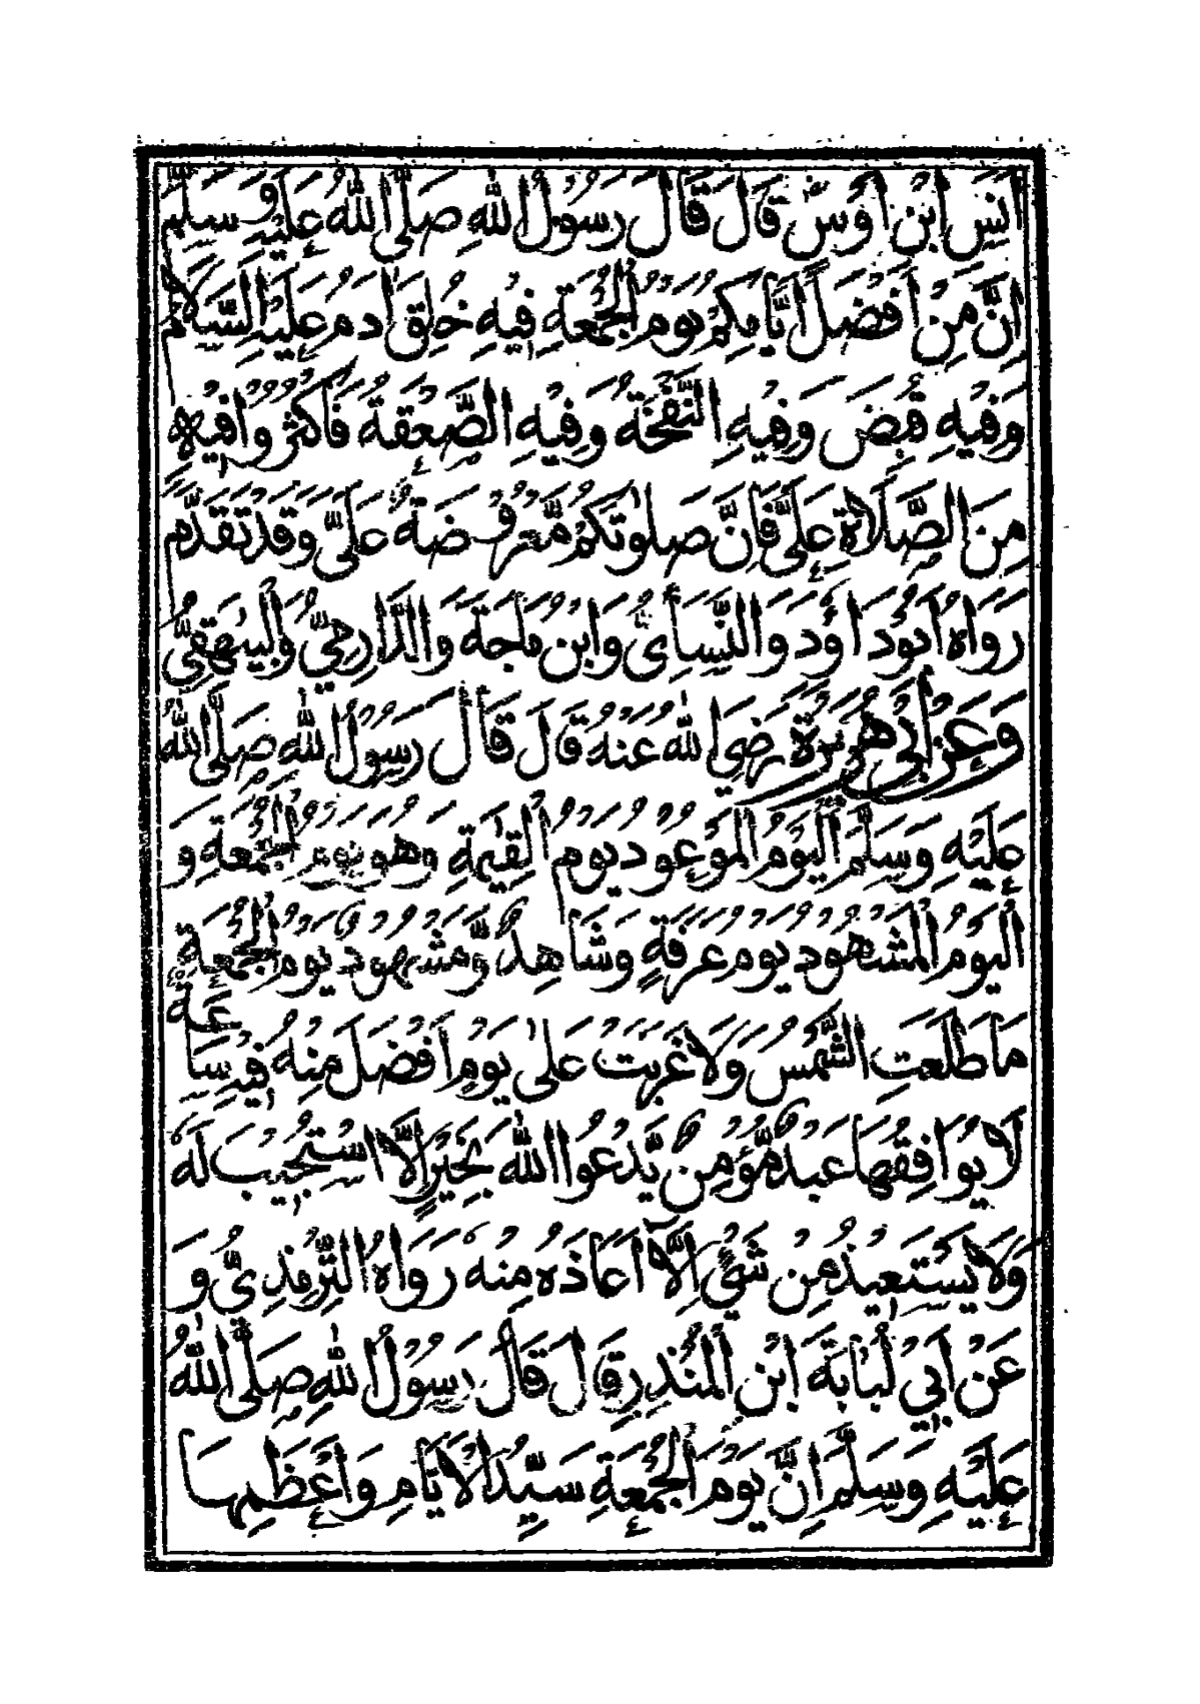 اَنَسِ ابْنِ اَوْسٍ قَالَ قَالَ رَسُوْلُ اللهِ صَلَّى اللهُ عَلَيْهِ وَسَلَّمَ
اِنَّ مِنْ اَفْضَلِ اَيَّامِكُمْ يَوْمُ الْجُمُعَةِ فِيْهِ خُلِقَ اٰدَمُ عَلَيْهِ السَّلَامُ
وَفِيْهِ قُبِضَ وَفِيْهِ النَّفْخَةُ وَفِيْهِ الصَّعِقَةُ فَاَكْثِرُوْا فِيْهِ
مِنَ الصَّلَاةِ عَلَيَّ فَاِنَّ صَلٰوتَكُمْ مَّعْرُوْضَةٌ عَلَيَّ وَقَدْ تَقَدَّمَ
رَوَاهُ اَبُوْدَاؤُدَ وَالنَّسَائِىُّ وَابْنُ مَاجَةَ وَالدَّارِمِىُّ وَالْبَيْهَقِىُّ
وَعَنْ اَبِىْ هُرَيْرَةَ رَضِيَ اللهُ عَنْهُ قَالَ قَالَ رَسُوْلُ اللهِ صَلَّى اللهُ
عَلَيْهِ وَسَلَّمَ اَلْيَوْمُ الْمَوْعُوْدُ يَوْمُ الْقِيٰمَةِ وَهُوَ يَوْمُ الْجُمُعَةِ وَ
الْيَوْمُ الْمَشْهُوْدُ يَوْمُ عَرَفَةٍ وَشَاهِدٌ وَّمَشْهُوْدٌ يَوْمُ الْجُمُعَةِ
مَا طَلَعَتِ الشَّمْسُ وَلَا غَرَبَتْ عَلٰى يَوْمٍ اَفْضَلَ مِنْهُ فِيْهِ سَاعَةٌ
لَا يُوَافِقُهَا عَبْدٌ مُّؤْمِنٌ يَّدْعُوا اللهَ بِخَيْرٍ اِلَّا اسْتُجِيْبَ لَهٗ
وَلَا يَسْتَعِيْذُ مِنْ شَيْئٍ اِلَّا اَعَاذَهٗ مِنْهُ رَوَاهُ التِّرْمِذِىُّ وَ
عَنْ اَبِىْ لُبَابَةَ ابْنِ الْمُنْذِرِ قَالَ قَالَ رَسُوْلُ اللهِ صَلَّى اللهُ
عَلَيْهِ وَسَلَّمَ اِنَّ يَوْمَ الْجُمُعَةِ سَيِّدُ الْاَيَّامِ وَاَعْظَمُهَا